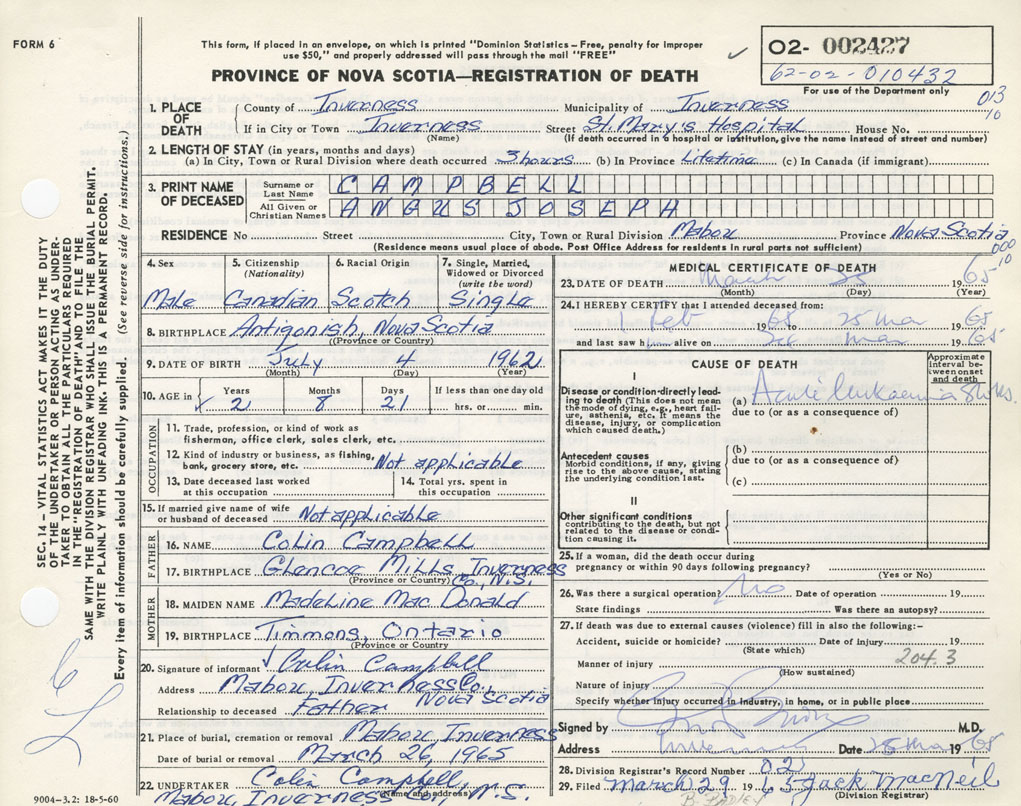 FORM 6
This form, if placed in an envelope, on which is printed "Dominion Statistics – Free, penalty for improper
use $50," and properly addressed will pass through the mail "FREE"
PROVINCE OF NOVA SCOTIA—REGISTRATION OF DEATH
O2- 002427
62-02-010432
For use of the Department only
013
10
SEC. 14 – VITAL STATISTICS ACT MAKES IT THE DUTY
OF THE UNDERTAKER OR PERSON ACTING AS UNDER-
TAKER TO OBTAIN ALL THE PARTICULARS REQUIRED
IN THE "REGISTRATION OF DEATH" AND TO FILE THE
SAME WITH THE DIVISION REGISTRAR WHO SHALL ISSUE THE BURIAL PERMIT.
WRITE PLAINLY WITH UNFADING INK. THIS IS A PERMANENT RECORD.
Every item of information should be carefully supplied. (See reverse side for instructions.)
1. PLACE OF DEATH
County of Inverness Municipality of Inverness
If in City or Town Inverness Street St. Mary's Hospital House No.
(Name) (If death occurred in a hospital or institution, give the name instead of street and number)
2. LENGTH OF STAY (in years, months and days)
(a) In City, Town or Rural Division where death occurred 3 hours (b) In Province Lifetime (c) In Canada (if immigrant)
3. PRINT NAME OF DECEASED
Surname or Last Name CAMPBELL
All Given or Christian Names ANGUS JOSEPH
RESIDENCE No Street City, Town or Rural Division Mabou Province Nova Scotia
(Residence means usual place of abode. Post Office Address for residents in rural parts not sufficient)
000
10
4. Sex 5. Citizenship (Nationality) 6. Racial Origin 7. Single, Married, Widowed or Divorced (write the word)
Male Canadian Scotch Single
8. BIRTHPLACE Antigonish, Nova Scotia
(Province or Country)
9. DATE OF BIRTH July 4 1962
(Month) (Day) (Year)
10. AGE in Years Months Days If less than one day old
2 8 21 hrs. or min.
OCCUPATION
11. Trade, profession, or kind of work as
fisherman, office clerk, sales clerk, etc.
12. Kind of industry or business, as fishing,
bank, grocery store, etc. Not applicable
13. Date deceased last worked at this occupation
14. Total yrs. spent in this occupation
15. If married give name of wife
or husband of deceased Not applicable
FATHER
16. NAME Colin Campbell
17. BIRTHPLACE Glencoe Mills, Inverness Co., N.S.
(Province or Country)
MOTHER
18. MAIDEN NAME Madeline Mac Donald
19. BIRTHPLACE Timmons, Ontario
(Province or Country
20. Signature of informant Colin Campbell
Address Mabou, Inverness Co., Nova Scotia
Relationship to deceased Father
21. Place of burial, cremation or removal Mabou Inverness
Date of burial or removal March 26, 1965
22. UNDERTAKER Colin Campbell
(Name and address)
Mabou, Inverness Co., N.S.
9004-3.2: 18-5-60
MEDICAL CERTIFICATE OF DEATH
23. DATE OF DEATH March 25 1965
(Month) (Day) (Year)
24. I HEREBY CERTIFY that I attended deceased from:
1 Feb 1965 25 Mar 1965
and last saw him alive on Mar 1965
CAUSE OF DEATH
Approximate interval between onset and death
I
Disease or condition directly leading
to death (This does not mean
the mode of dying, e.g., heart failure,
asthenia, etc. It means the
disease, injury, or complication
which caused death.)
(a) Acute leukaemia
due to (or as a consequence of)
Antecedent causes
Morbid conditions, if any, giving
rise to the above cause, stating
the underlying condition last.
(b)
due to (or as a consequence of)
(c)
II
Other significant conditions
contributing to the death, but not
related to the disease or condi-
tion causing it.
25. If a woman, did the death occur during
pregnancy or within 90 days following pregnancy?
(Yes or No)
26. Was there a surgical operation? No Date of operation 19
State findings Was there an autopsy?
27. If death was due to external causes (violence) fill in also the following:-
Accident, suicide or homicide? Date of injury 19
(State which)
204.3
Manner of injury
(How sustained)
Nature of injury
Specify whether injury occurred in industry, in home, or in public place
Signed by M.D.
Address Inverness Date 25 Mar 1965
28. Division Registrar's Record Number 021
29. Filed March 29 1965 Jack MacNeil
(Division Registrar)